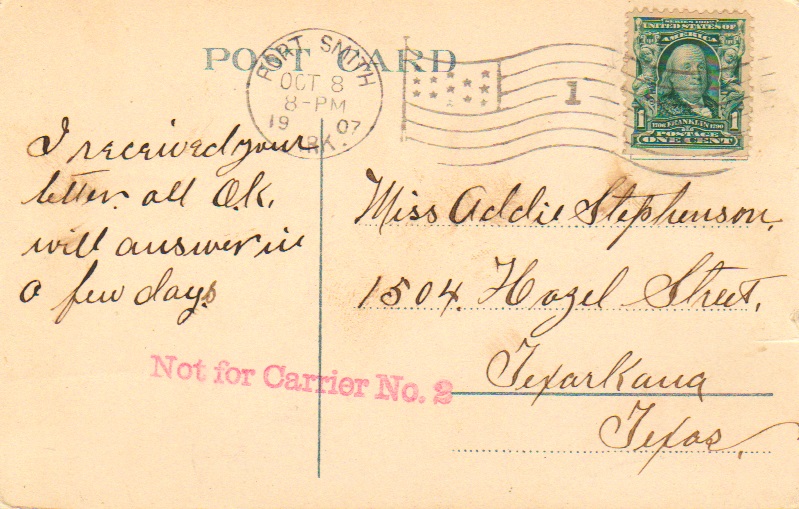 POST CARD
FORT SMITH
OCT 8
8-PM
1907
ARK.
1
SERIES 1902
UNITED STATES OF
AMERICA
1 1706 FRANKLIN 1790 1
POSTAGE
ONE CENT
I received your
letter. all O.K.
will answer in
a few days
Miss Addie Stephenson,
1504. Hazel Street,
Texarkana
Texas.
Not for Carrier No. 2